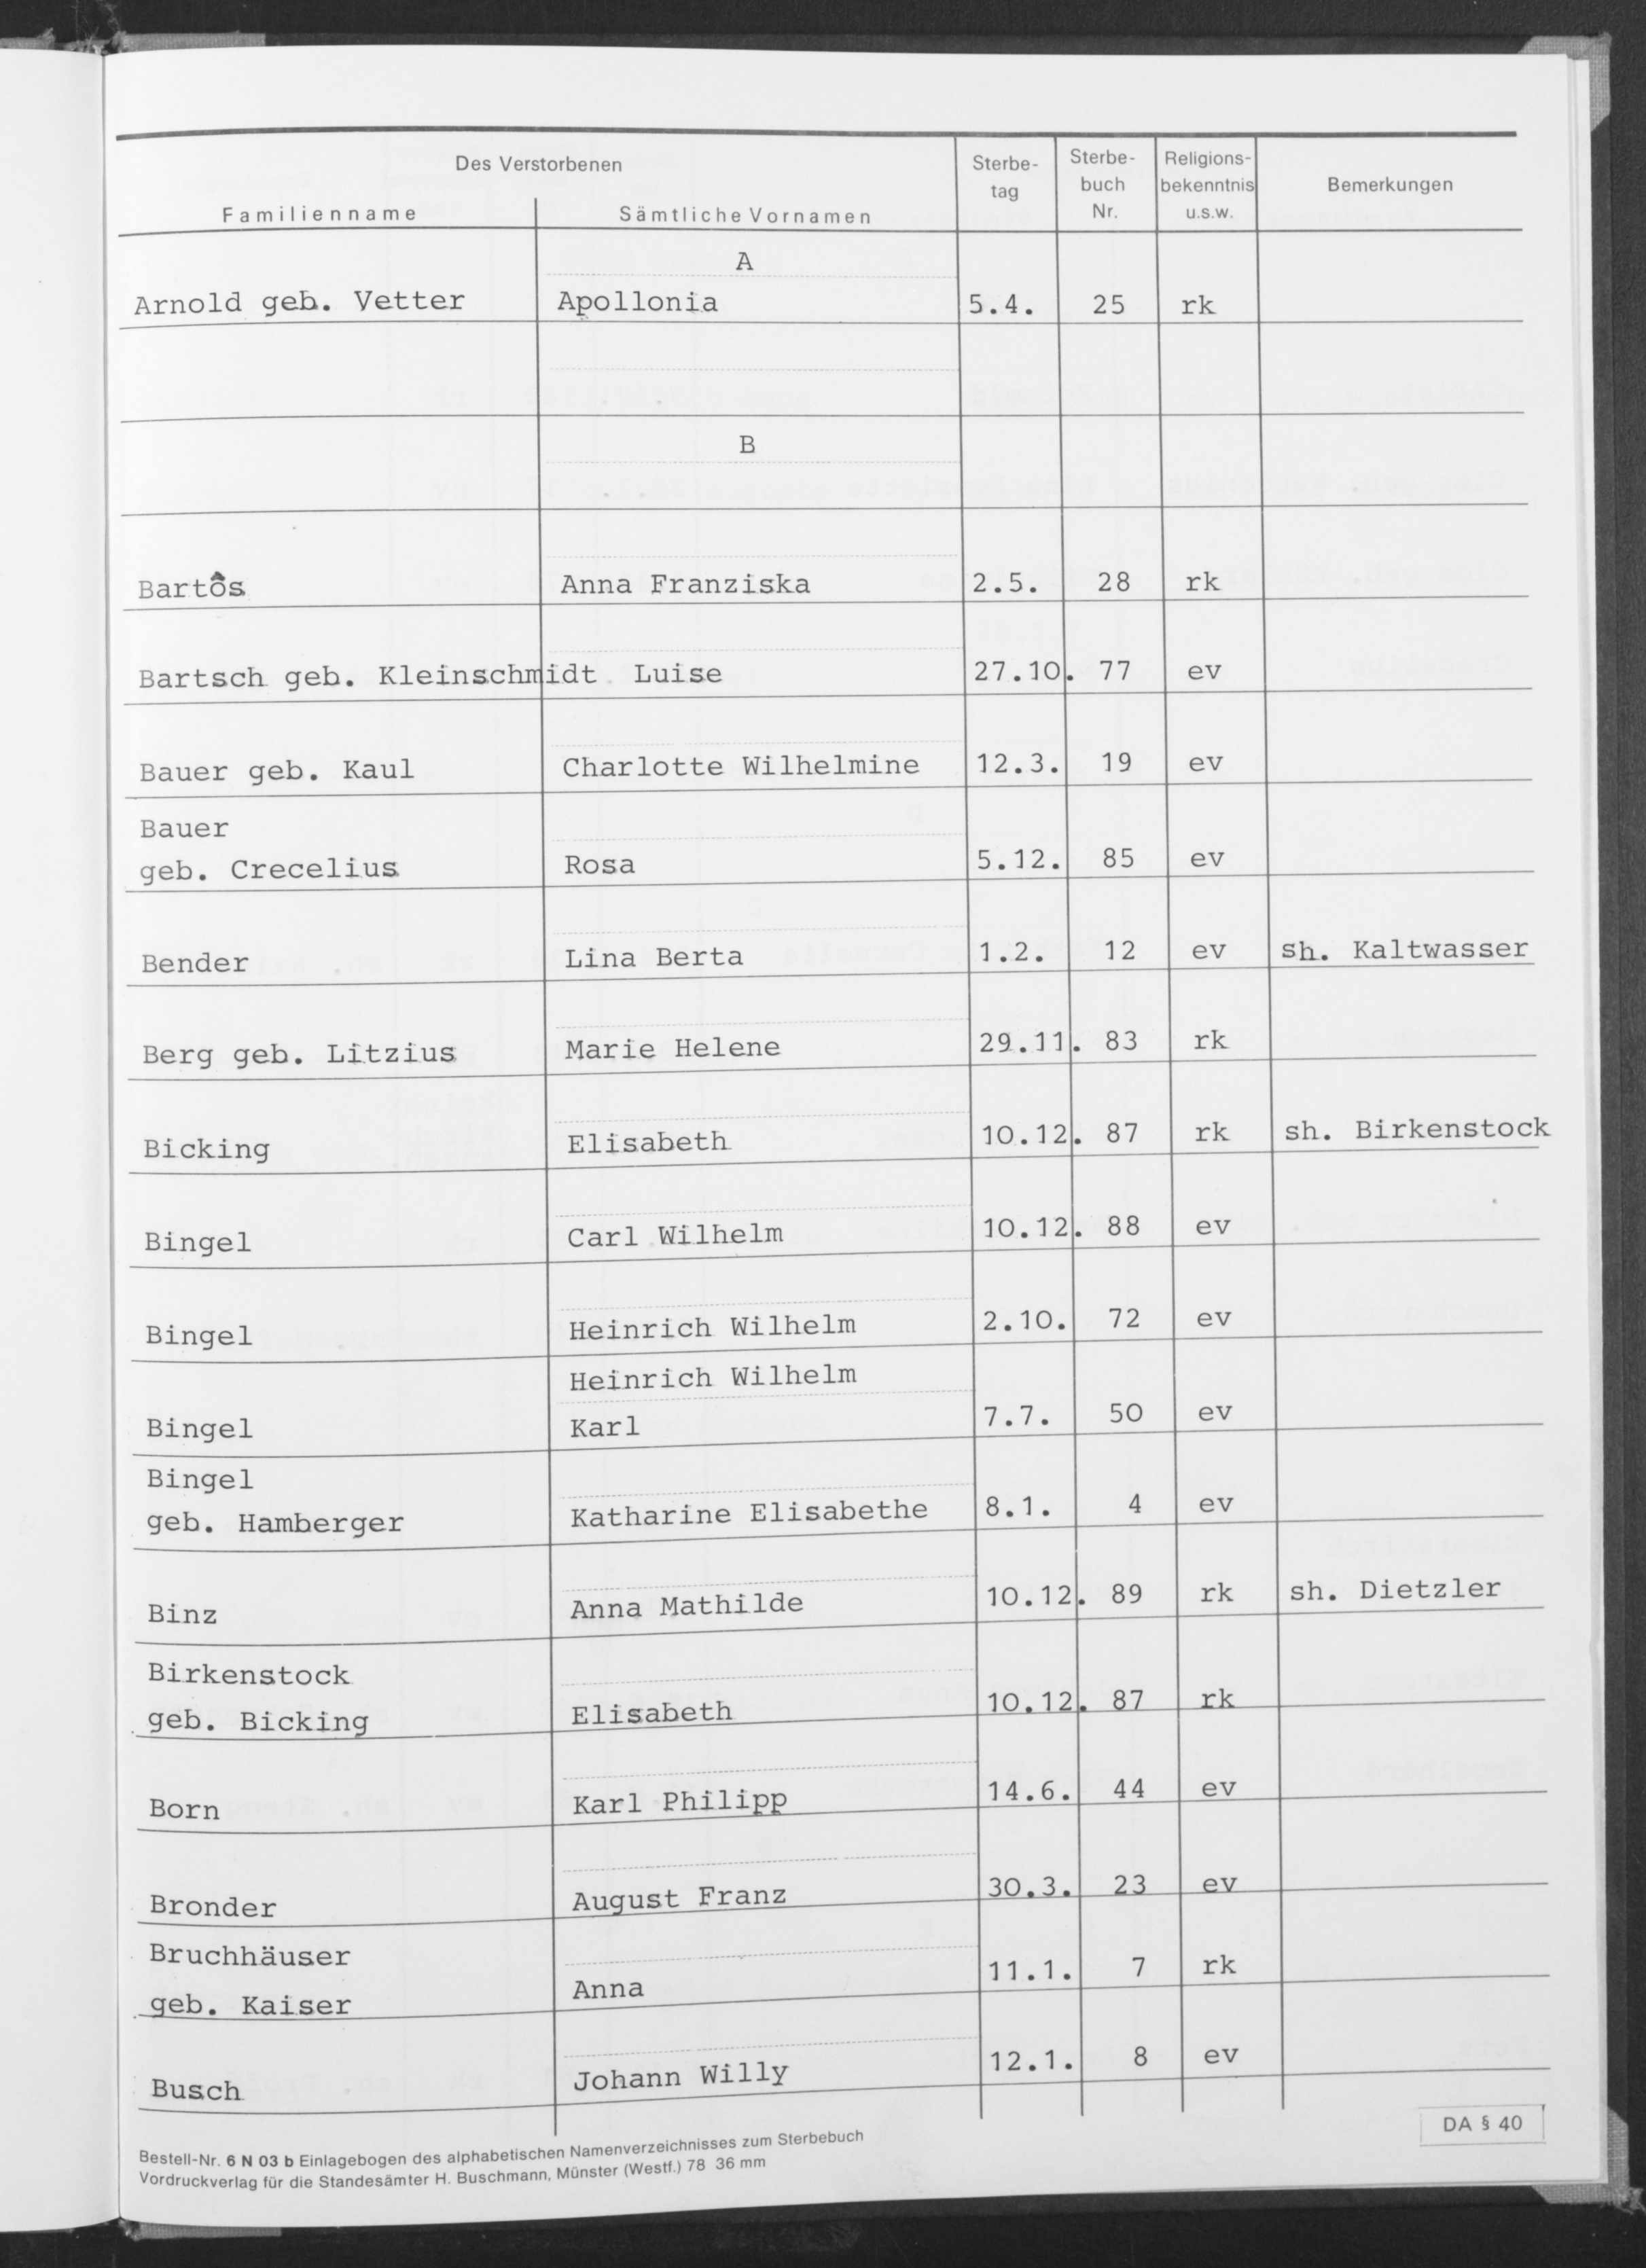 Des Verstorbenen
Familienname Sämtliche Vornamen Sterbe-tag Sterbe-buch Nr. Religions-bekenntnis u.s.w. Bemerkungen
A
Arnold geb. Vetter Apollonia 5.4. 25 rk
B
Bartôs Anna Franziska 2.5. 28 rk
Bartsch geb. Kleinschmidt Luise 27.10. 77 ev
Bauer geb. Kaul Charlotte Wilhelmine 12.3. 19 ev
Bauer
geb. Crecelius Rosa 5.12. 85 ev
Bender Lina Berta 1.2. 12 ev sh. Kaltwasser
Berg geb. Litzius Marie Helene 29.11. 83 rk
Bicking Elisabeth 10.12. 87 rk sh. Birkenstock
Bingel Carl Wilhelm 10.12. 88 ev
Bingel Heinrich Wilhelm 2.10. 72 ev
Heinrich Wilhelm
Bingel Karl 7.7. 50 ev
Bingel
geb. Hamberger Katharine Elisabethe 8.1. 4 ev
Binz Anna Mathilde 10.12. 89 rk sh. Dietzler
Birkenstock
geb. Bicking Elisabeth 10.12. 87 rk
Born Karl Philipp 14.6. 44 ev
Bronder August Franz 30.3. 23 ev
Bruchhäuser
geb. Kaiser Anna 11.1. 7 rk
Busch Johann Willy 12.1. 8 ev
DA § 40
Bestell-Nr. 6 N 03 b Einlagebogen des alphabetischen Namenverzeichnisses zum Sterbebuch
Vordruckverlag für die Standesämter H. Buschmann, Münster (Westf.) 78 36 mm